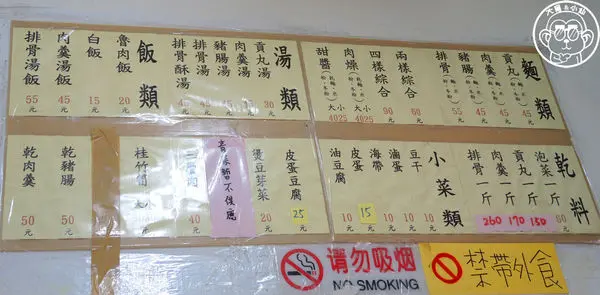 麵類
貢丸 45元
肉羹 45元
豬腸 45元
排骨 55元
兩樣綜合 60元
四樣綜合 90元
肉燥 大小 4025
甜醬 大小 4025
湯類
貢丸湯 30元
肉羹湯 45元
豬腸湯 45元
排骨湯 45元
排骨酥湯 45元
飯類
魯肉飯 20元
白飯 15元
肉羹湯飯 45元
排骨湯飯 55元
乾料
泡菜一斤 元
貢丸一斤 150
肉羹一斤 170
排骨一斤 260
小菜類
豆干 10元
滷蛋 10元
海帶 10元
皮蛋 15元
油豆腐 10元
皮蛋豆腐 25元
燙豆芽菜 20元
暫不供應
40元
桂竹筍
乾豬腸 50元
乾肉羹 50元
请勿吸烟
NO SMOKING
禁帶外食